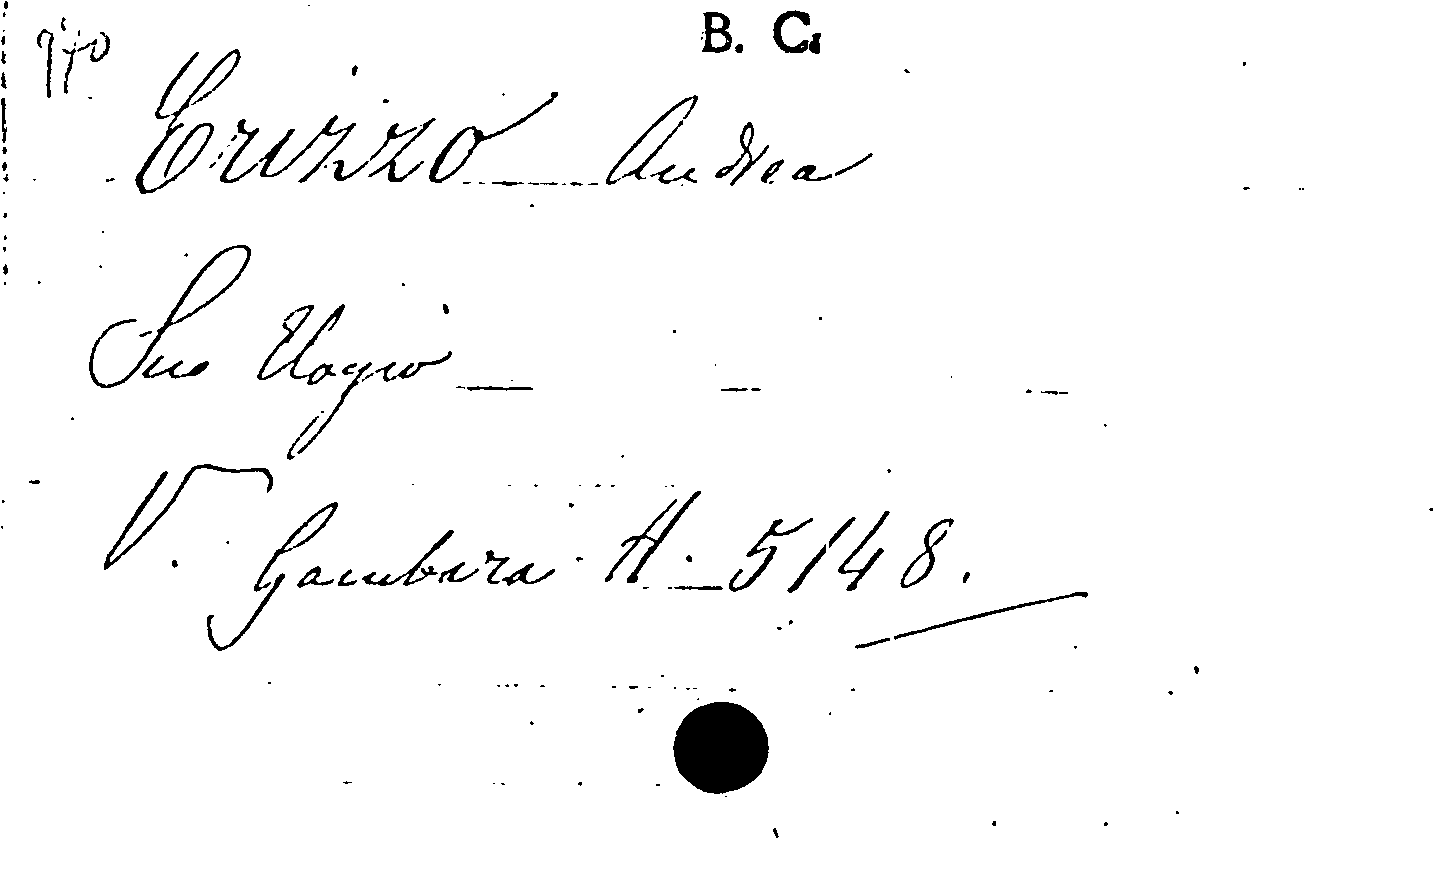 B. C.
Erizzo Andrea
Suo Elogio
V. Gambara A. 5148.